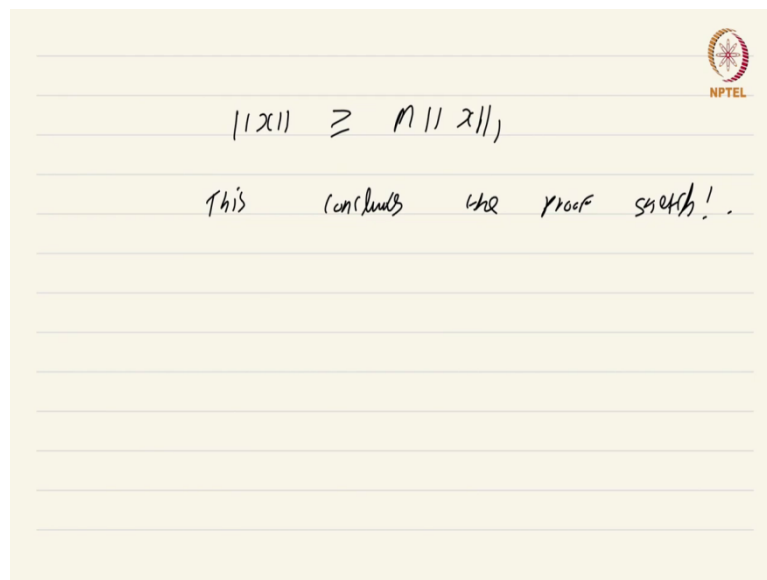 NPTEL
||x|| ≥ m ||x||₁
This concludes the proof sketch!.